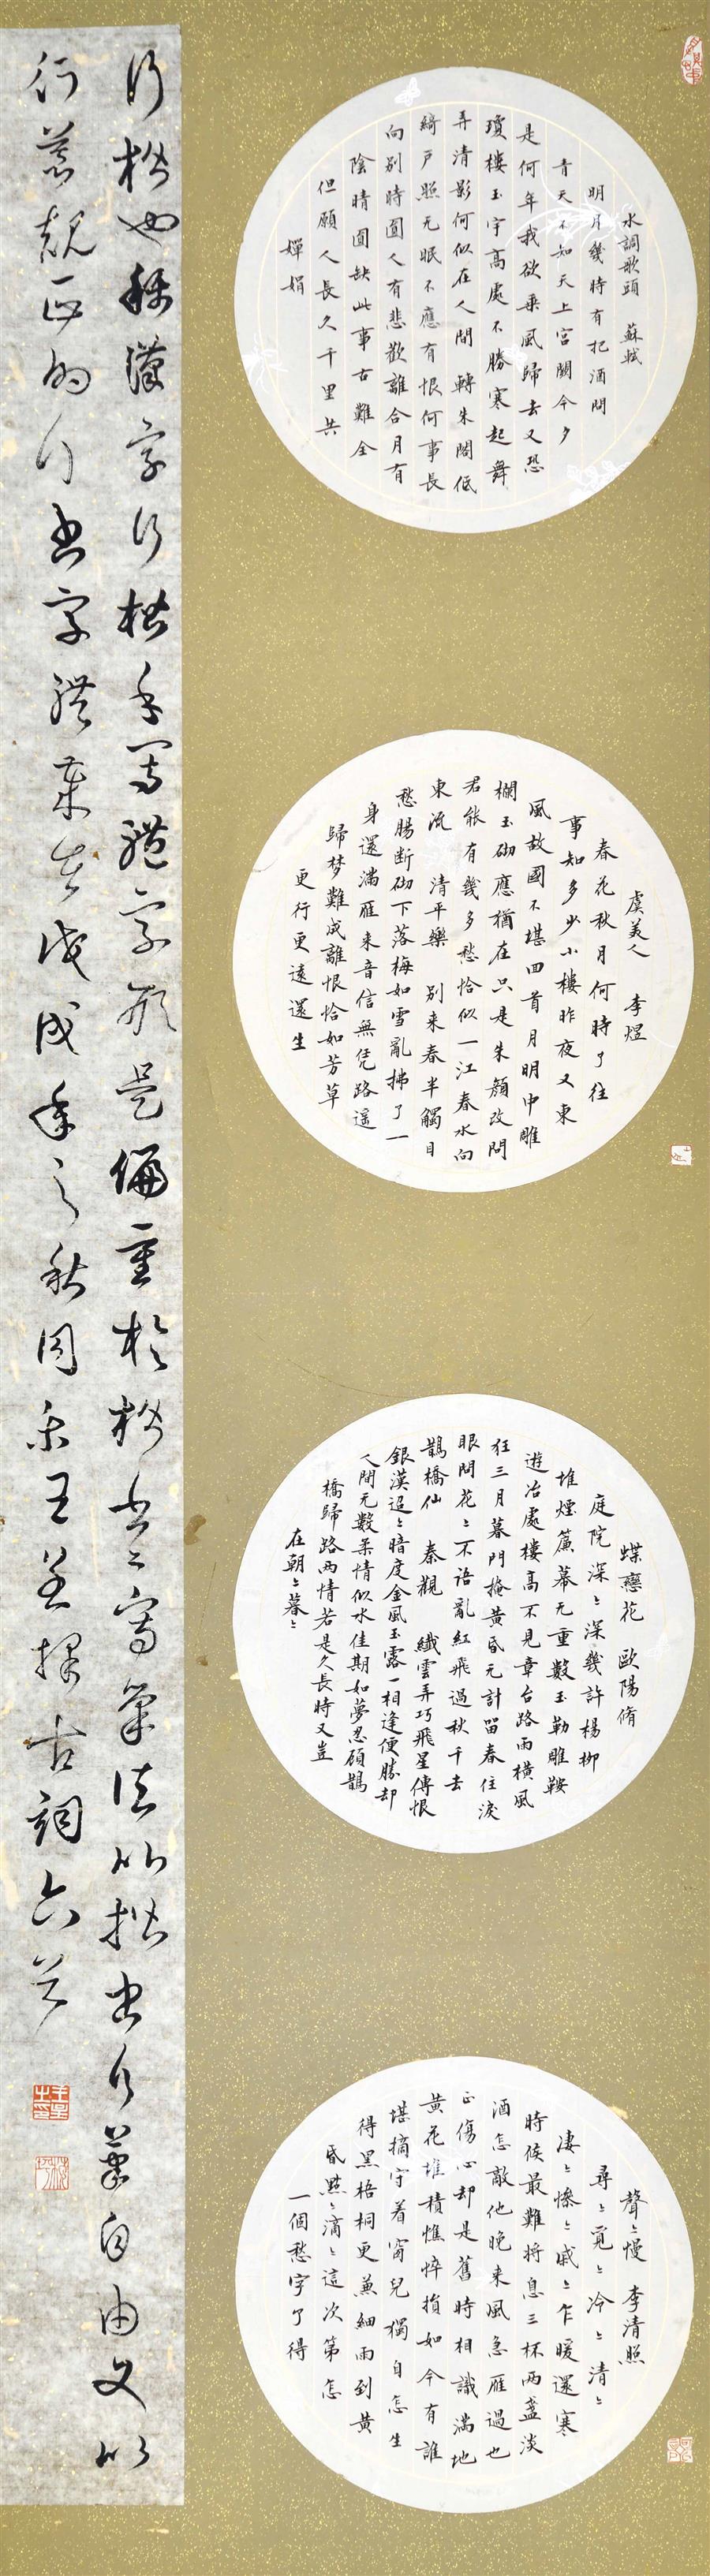 水調歌頭 蘇軾
明月幾時有把酒問
青天不知天上宮闕今夕
是何年我欲乘風歸去又恐
瓊樓玉宇高處不勝寒起舞
弄清影何似在人間轉朱閣低
綺戶照无眠不應有恨何事長
向別時圓人有悲歡離合月有
陰晴圓缺此事古難全
但願人長久千里共
嬋娟
虞美人 李煜
春花秋月何時了往
事知多少小樓昨夜又東
風故國不堪回首月明中雕
欄玉砌應猶在只是朱顏改問
君能有幾多愁恰似一江春水向
東流 清平樂 別來春半觸目
愁腸断砌下落梅如雪亂拂了一
身還滿雁來音信無凭路遥
歸梦難成離恨恰如芳草
更行更遠還生
蝶戀花 歐陽脩
庭院深〻深幾許楊柳
堆煙簾幕无重數玉勒雕鞍
遊冶處樓高不見章台路雨橫風
狂三月暮門掩黃昏无計留春住淚
眼問花〻不語亂紅飛過秋千去
鵲橋仙 秦觀 纖雲弄巧飛星傳恨
銀漢迢〻暗度金風玉露一相逢便勝却
人間无數柔情似水佳期如夢忍顧鵲
橋歸路兩情若是久長時又豈
在朝〻暮〻
聲〻慢 李清照
尋〻覓〻冷〻清〻
凄〻慘〻戚〻乍暖還寒
時候最難將息三杯兩盞淡
酒怎敵他晚來風急雁過也
正傷心却是舊時相識滿地
黃花堆積憔悴損如今有誰
堪摘守着窗兒獨自怎生
得黑梧桐更兼細雨到黃
昏點〻滴〻這次第怎
一個愁字了得
行楷也稱漢字行楷手寫體字形是偏重於楷書書寫筆法以楷書行筆自由又以
行書字體戊戌年之秋月王古詞六首